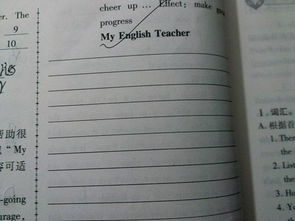 er. The
9
10
cheer up … Effect; make go
progress
My English Teacher
帮助很
"My
容可适
-going
urage,
1. 词汇。
A. 根据首
1. Ther
the
2. List
the
3. H
4. Yo